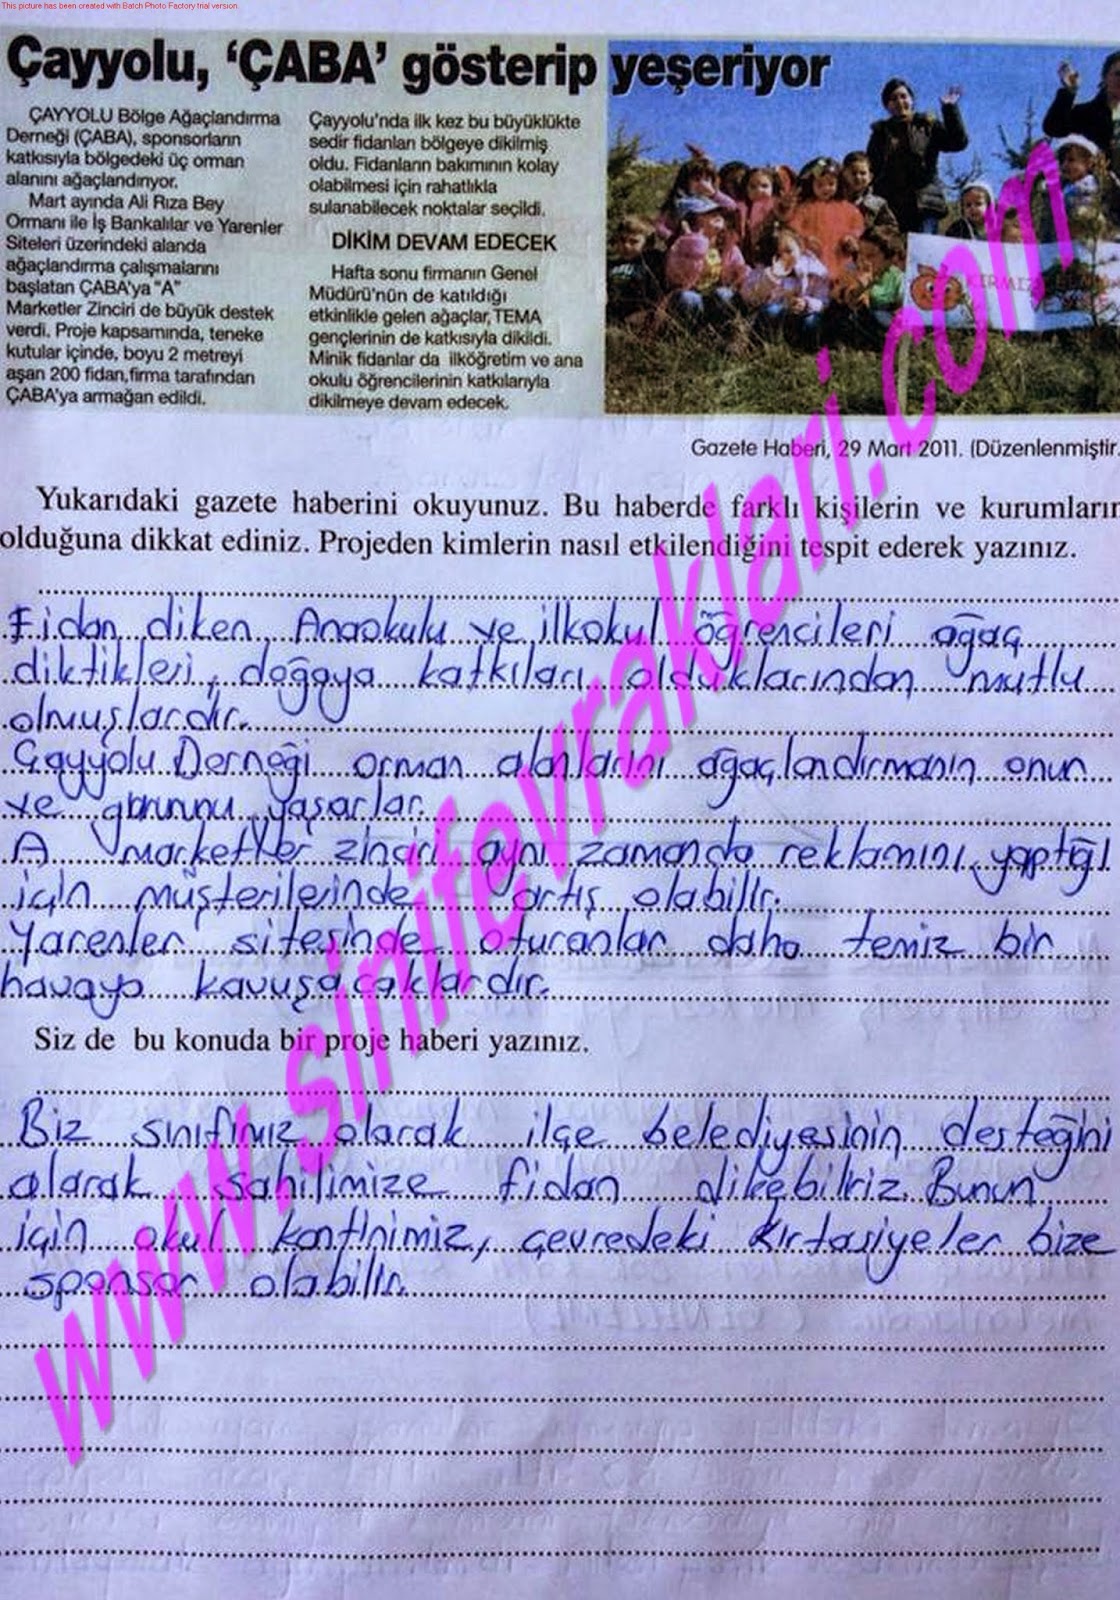 This picture has been created with Batch Photo Factory trial version.
Çayyolu, 'ÇABA' gösterip yeşeriyor
ÇAYYOLU Bölge Ağaçlandırma
Derneği (ÇABA), sponsorların
katkısıyla bölgedeki üç orman
alanını ağaçlandırıyor.
Mart ayında Ali Rıza Bey
Ormanı ile İş Bankalılar ve Yarenler
Siteleri üzerindeki alanda
ağaçlandırma çalışmalarını
başlatan ÇABA'ya "A"
Marketler Zinciri de büyük destek
verdi. Proje kapsamında, teneke
kutular içinde, boyu 2 metreyi
aşan 200 fidan,firma tarafından
ÇABA'ya armağan edildi.
Çayyolu'nda ilk kez bu büyüklükte
sedir fidanları bölgeye dikilmiş
oldu. Fidanların bakımının kolay
olabilmesi için rahatlıkla
sulanabilecek noktalar seçildi.
DİKİM DEVAM EDECEK
Hafta sonu firmanın Genel
Müdürü'nün de katıldığı
etkinlikle gelen ağaçlar, TEMA
gençlerinin de katkısıyla dikildi.
Minik fidanlar da ilköğretim ve ana
okulu öğrencilerinin katkılarıyla
dikilmeye devam edecek.
KIRMIZI
Gazete Haberi, 29 Mart 2011. (Düzenlenmiştir.
Yukarıdaki gazete haberini okuyunuz. Bu haberde farklı kişilerin ve kurumların
olduğuna dikkat ediniz. Projeden kimlerin nasıl etkilendiğini tespit ederek yazınız.
Fidan diken Anaokulu ve ilkokul öğrencileri ağaç
diktikleri, doğaya katkıları olduklarından mutlu
olmuşlardır.
Çayyolu Derneği orman alanlarını ağaçlandırmanın onun
ve gururunu yaşarlar.
A marketler zinciri aynı zamanda reklamını yaptığı
için müşterilerinde artış olabilir.
Yarenler sitesinde oturanlar daha temiz bir
havaya kavuşacaklardır.
Siz de bu konuda bir proje haberi yazınız.
Biz sınıfımız olarak ilçe belediyesinin desteğini
alarak sahilimize fidan dikebiliriz. Bunun
için okul kantinimiz, çevredeki kırtasiyeler bize
sponsor olabilir.
www.sinifevraklari.com